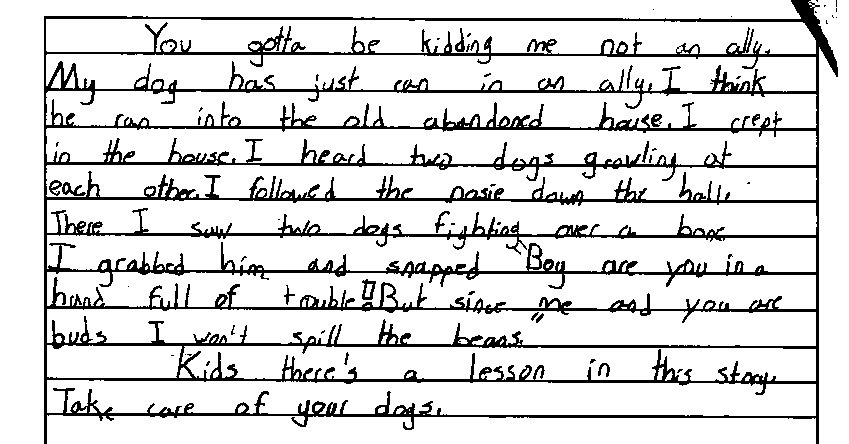 You gotta be kidding me not an ally.
My dog has just ran in an ally. I think
he ran into the old abandoned house. I crept
in the house. I heard two dogs growling at
each other. I followed the nosie down the hall.
There I saw two dogs fighting over a bone
I grabbed him and snapped "Boy are you in a
hand full of trouble!! But since me and you are
buds I won't spill the beans.
Kids there's a lesson in this story.
Take care of your dogs.